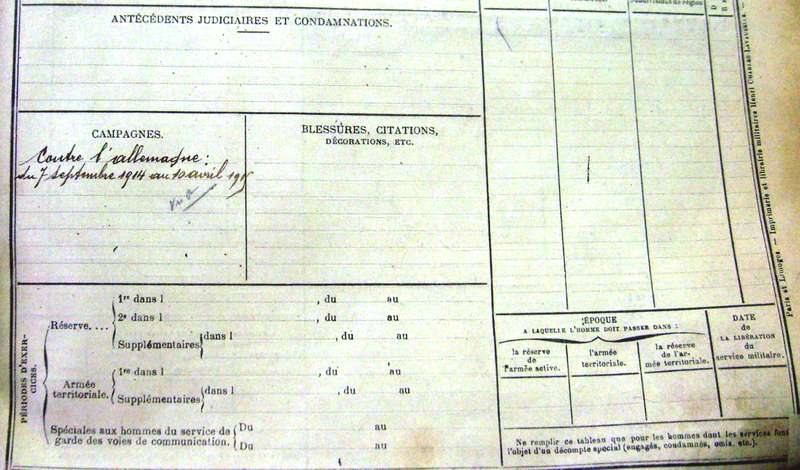 ANTÉCÉDENTS JUDICIAIRES ET CONDAMNATIONS.
CAMPAGNES.
Contre l'allemagne :
du 7 Septembre 1914 au 10 avril 191
Vu
BLESSURES, CITATIONS,
DÉCORATIONS, ETC.
PÉRIODES D'EXER-
CICES.
Réserve....
1re dans l , du au
2e dans l , du au
Supplémentaires dans l , du au
Armée
territoriale.
1re dans l , du au
Supplémentaires dans l , du au
Spéciales aux hommes du service de
garde des voies de communication.
Du au
Du au
ÉPOQUE
A LAQUELLE L'HOMME DOIT PASSER DANS :
la réserve
de
l'armée active.
l'armée
territoriale.
la réserve
de l'ar-
mée territoriale.
DATE
de
LA LIBÉRATION
du
service militaire.
Ne remplir ce tableau que pour les hommes dont les services font
l'objet d'un décompte spécial (engagés, condamnés, omis, etc.).
Paris et Limoges. — Imprimerie et librairie militaires Henri CHARLES-LAVAUZELLE. —